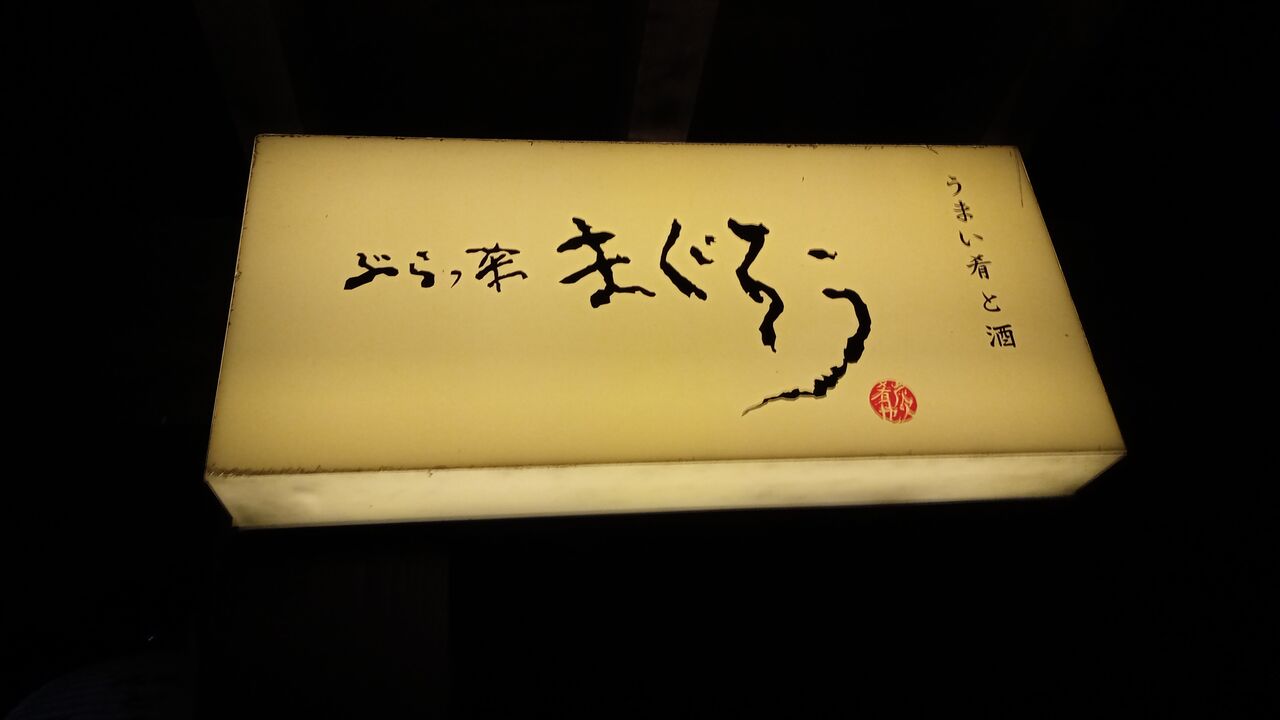 うまい肴と酒
ぶらっ菜 まぐろう